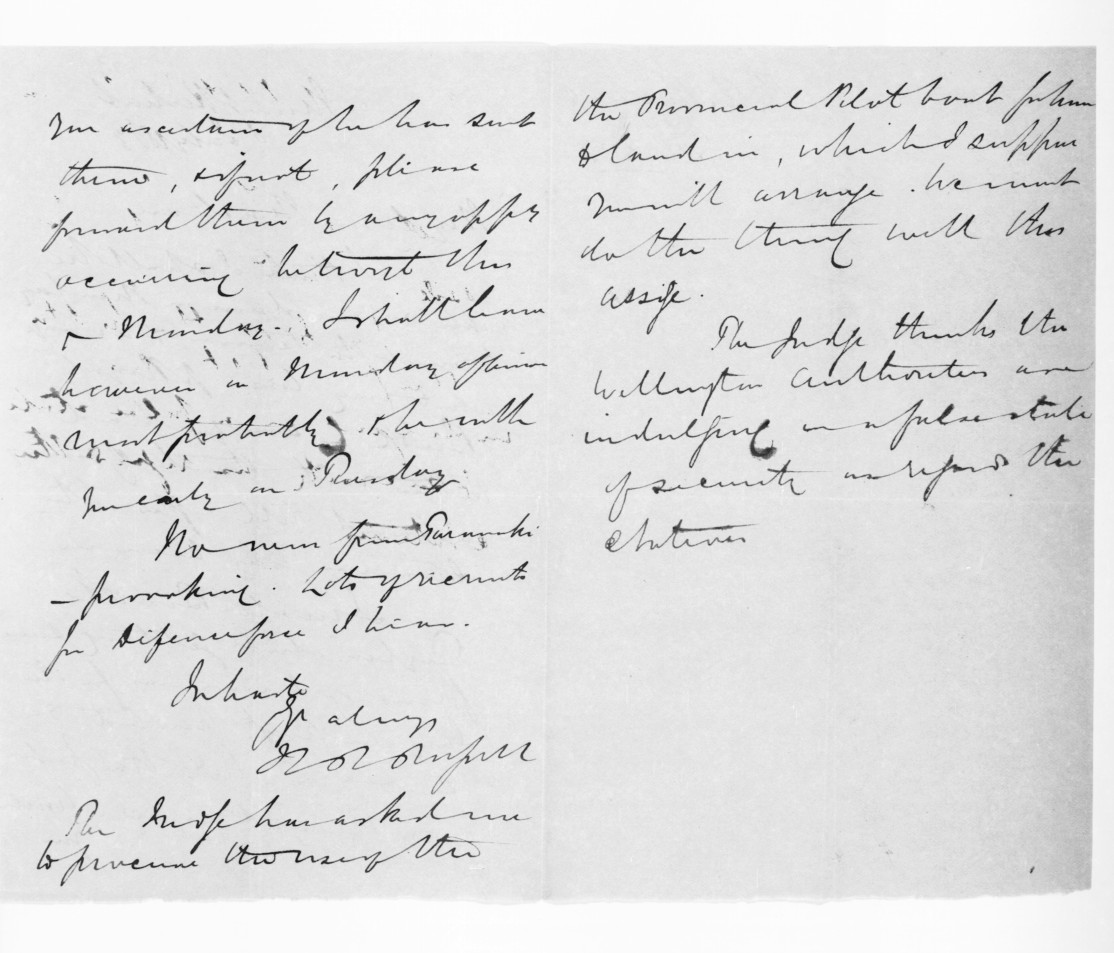 you ascertain if he has sent
them, & if not, please
forward them by any oppy
occurring betwixt this
& Monday. I shall leave
however on Monday afternoon
most probably & be with
you early on Tuesday.
No news from Taranaki
– provoking. Lots of recruits
for Defence force I hear.
In haste
Yrs always
H R Russell
The Judge has asked me
to procure the use of the
the Provincial Pilot boat for him
to land in, which I suppose
you will arrange. We must
do the thing well this
assize.
The Judge thinks the
Wellington authorities are
indulging in a false state
of security as regards the
Natives